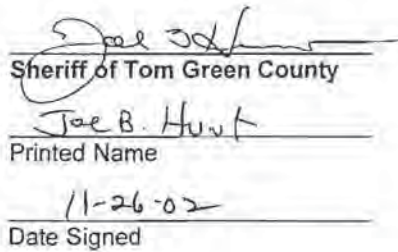 Sheriff of Tom Green County
Joe B. Hunt
Printed Name
11-26-02
Date Signed